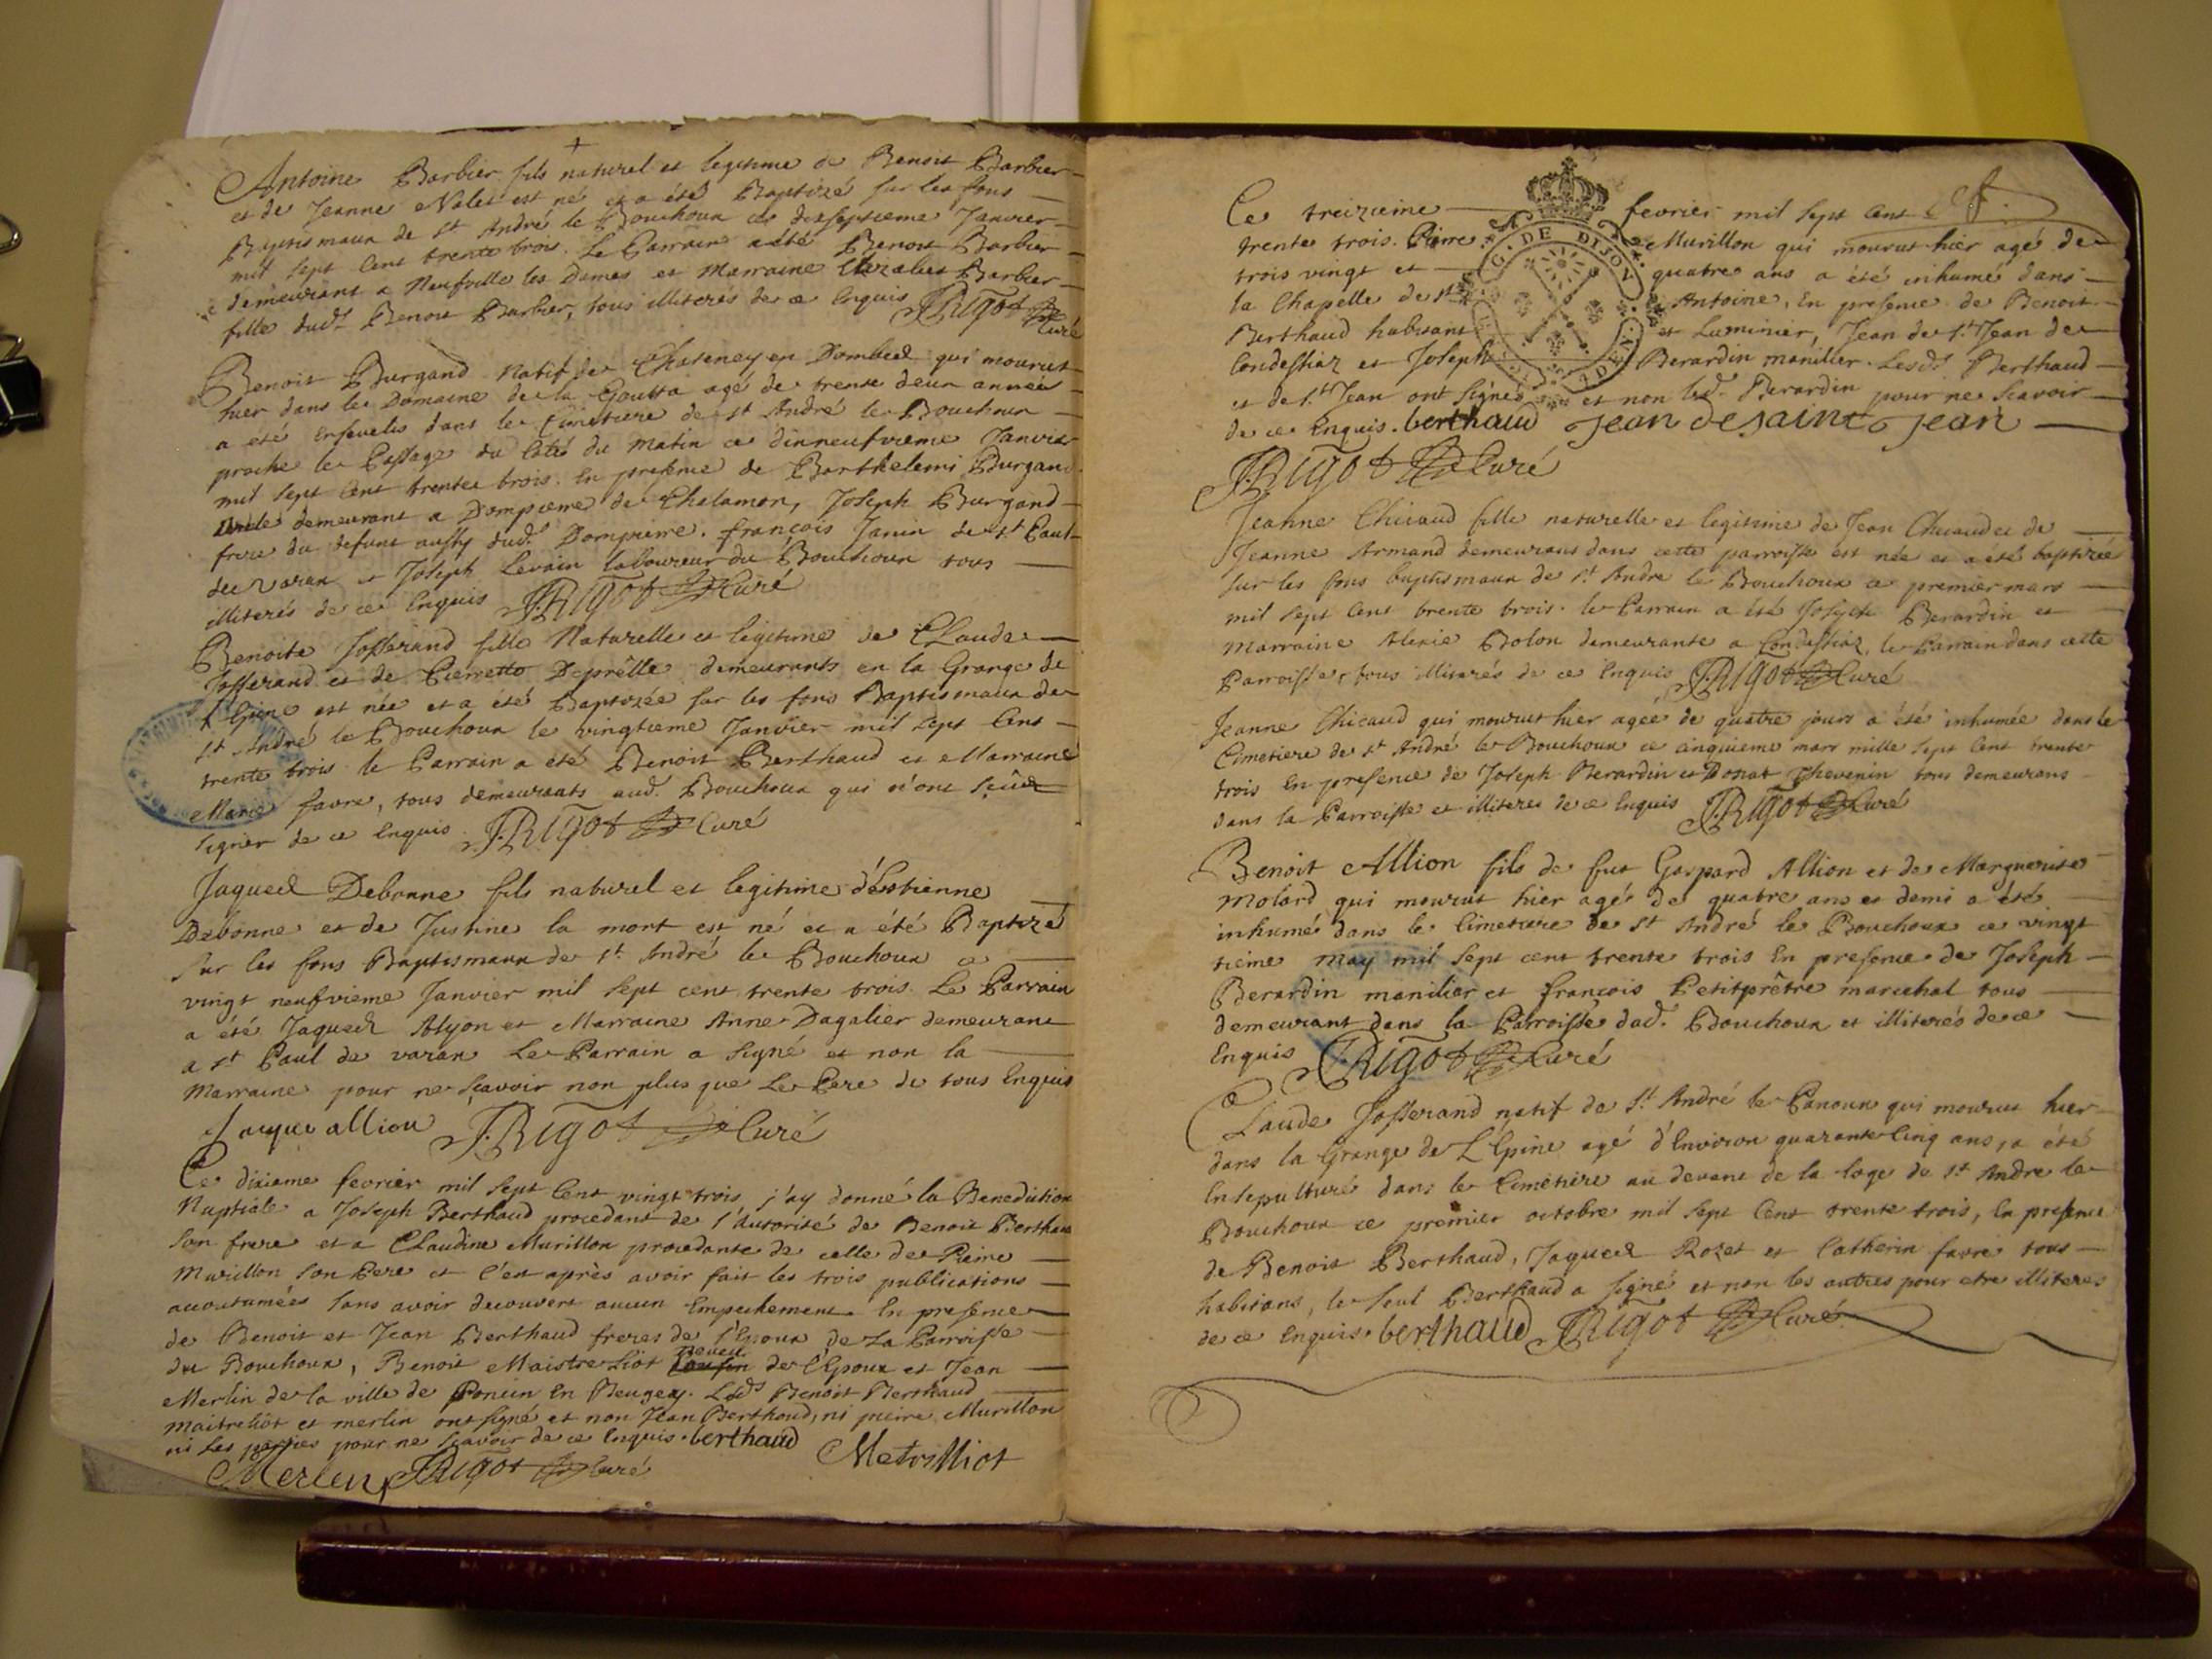 Antoine Barbier fils naturel et legitime de Benoit Barbier
et de Jeanne Nalet est né et a été Baptizé sur les fons
Baptismaux de st André le Bouchoux ce dixseptieme Janvier
mil sept cent trente trois. Le Parrain a été Benoit Barbier
demeurant a Neufville les Dames et Marraine Barbier
fille dud.t Benoit Barbier, tous illiterés de ce Enquis JRigot Curé
Benoit Burgand Natif de Chateney en Dombes qui mourut
hier dans le Domaine de la Goutta agé de trente deux années
a été Ensevelis dans le Cimetiere de st André le Bouchoux
proche le Passage du coté du Matin ce dixneufvieme Janvier
mil sept cent trente trois. En presence de Barthelemi Burgand
oncle demeurant a Dompierre de Chelamon, Joseph Burgand
frere du defunt aussy dud. Dompierre. françois Janin de st Paul
de varax et Joseph Levain laboureur du Bouchoux tous
illiterés de ce Enquis JRigot Curé
Benoite Josserand fille Naturelle et legitime de Claude
Josserand et de Pierrette Deprêlle demeurants en la Grange de
l'Epine est née et a été Baptizée sur les fons Baptismaux de
st André le Bouchoux le vingtieme Janvier mil sept Cent
trente trois le Parrain a été Benoit Berthaud et Marraine
Marie favre, tous demeurants aud. Bouchoux qui n'ont sçeûs
signer de ce Enquis. JRigot Curé
Jaques Debonne fils naturel et legitime d'Estienne
Debonne et de Justine la mort est né et a été Baptizé
sur les fons Baptismaux de st. André le Bouchoux ce
vingt neufvieme Janvier mil sept cent trente trois. Le Parrain
a été Jaques Alyon et Marraine Anne Dagalier demeurant
a st Paul de varax Le Parrain a signé et non la
Marraine pour ne sçavoir non plus que Le Pere de tous Enquis
Jacque allion JRigot Curé
Ce dixieme fevrier mil sept Cent vingt trois, j'ay donné la Benediction
Nuptiale a Joseph Berthaud procedant de l'Autorité de Benoit Berthaud
son frere et a Claudine Murillon procedante de celle de Pierre
Murillon son Pere et c'est après avoir fait les trois publications
accoutumées sans avoir decouvert aucun Empechement. En presence
de Benoit et Jean Berthaud freres de l'Epoux de La Parroisse
du Bouchoux, Benoit Maistre Liot neveu de l'Epoux et Jean
Merlin de la ville de Poncin En Beugey. Lesd.s Benoit Berthaud
maitreliot et merlin ont signé et non Jean Berthaud, ni pierre Murillon
ni les parties pour ne sçavoir de ce Enquis. berthaud Metrilliot
Merlin JRigot Curé
Ce treizieme fevrier mil sept Cent
G. DE DIJON
trente trois. Pierre Murillon qui mourut hier agé de
trois vingt et quatre ans a été inhumé dans
la Chapelle de st Antoine, En presence de Benoit
Berthaud habitant et Luminier, Jean de st. Jean de
Condessiaz et Joseph Berardin maniller. Lesd.s Berthaud
et de st. Jean ont signés et non led. Berardin pour ne sçavoir
de ce Enquis. berthaud Jean de saint Jean
JRigot Curé
Jeanne Chicaud fille naturelle et legitime de Jean Chicaud et de
Jeanne Armand demeurans dans cette parroisse est née et a été baptizée
sur les fons baptismaux de st. André le Bouchoux ce premier mars
mil sept Cent trente trois. le Parrain a été Joseph Berardin et
Marraine Alexie Bolon demeurante a Condessiaz, le Parrain dans cette
Parroisse, tous illiterés de ce Enquis JRigot Curé
Jeanne Chicaud qui mourut hier agée de quatre jours a été inhumée dans le
Cimetiere de st André le Bouchoux ce cinquieme mars mille sept Cent trente
trois En presence de Joseph Berardin et Donat Thevenin tous demeurans
dans la Parroisse et illiteres de ce Enquis JRigot Curé
Benoit Allion fils de fut Gaspard Allion et de Marguerite
Molard qui mourut hier agé de quatre ans et demi a été
inhumé dans le Cimetiere de st André le Bouchoux ce vingt
tieme may mil sept cent trente trois En presence de Joseph
Berardin manilier et françois Petitprêtre marechal tous
demeurant dans la Parroisse dud. Bouchoux et illiterés de ce
Enquis JRigot Curé
Claude Josserand natif de st. André le Panoux qui mourut hier
dans la Grange de L'Epine agé d'Environ quarante Cinq ans, a été
Ensepulturé dans le Cimetiere au devant de la loge de st André le
Bouchoux ce premier octobre mil sept Cent trente trois, En presence
de Benoit Berthaud, Jaques Rozet et Catherin favre tous
habitans, le seul Berthaud a signé et non les autres pour etre illiteres
de ce Enquis. berthaud JRigot Curé